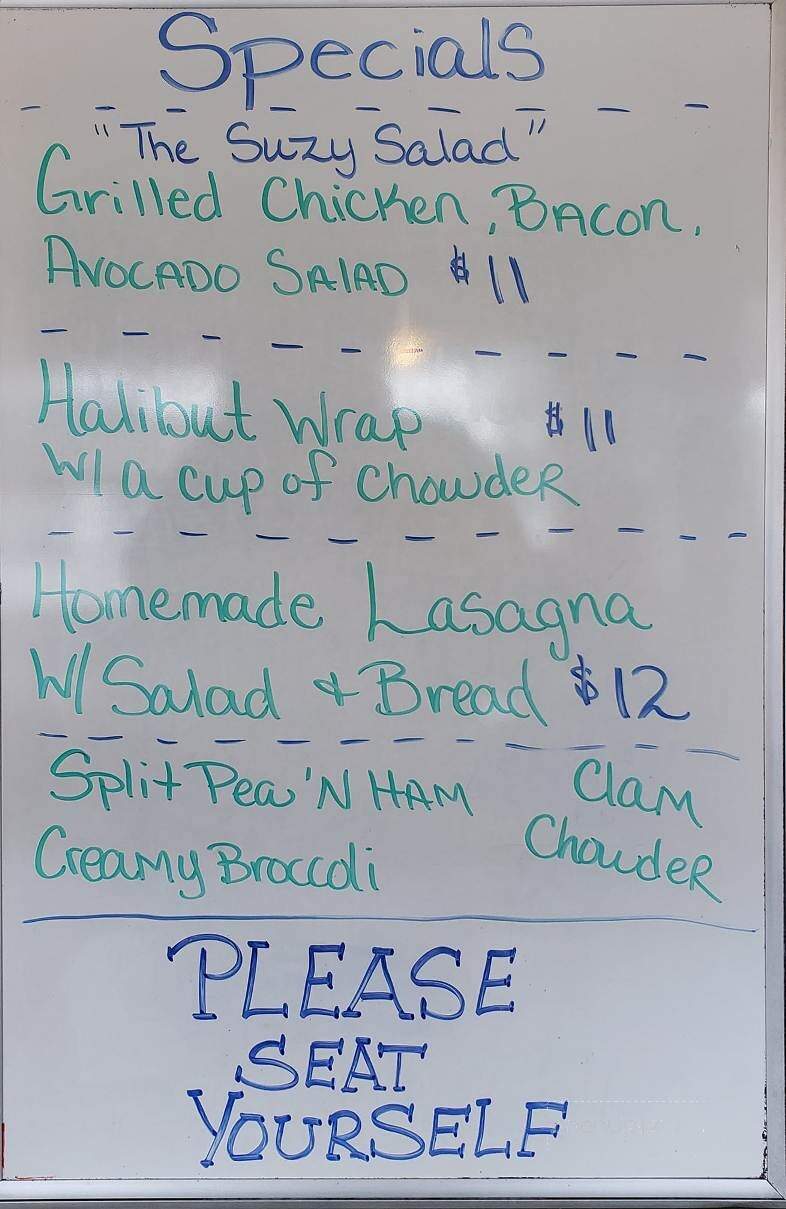 Specials
"The Suzy Salad"
Grilled Chicken, Bacon,
Avocado Salad $11
Halibut Wrap $11
W/ a cup of chowder
Homemade Lasagna
W/ Salad & Bread $12
Split Pea 'N HAM
Creamy Broccoli
Clam
Chowder
PLEASE
SEAT
YOURSELF